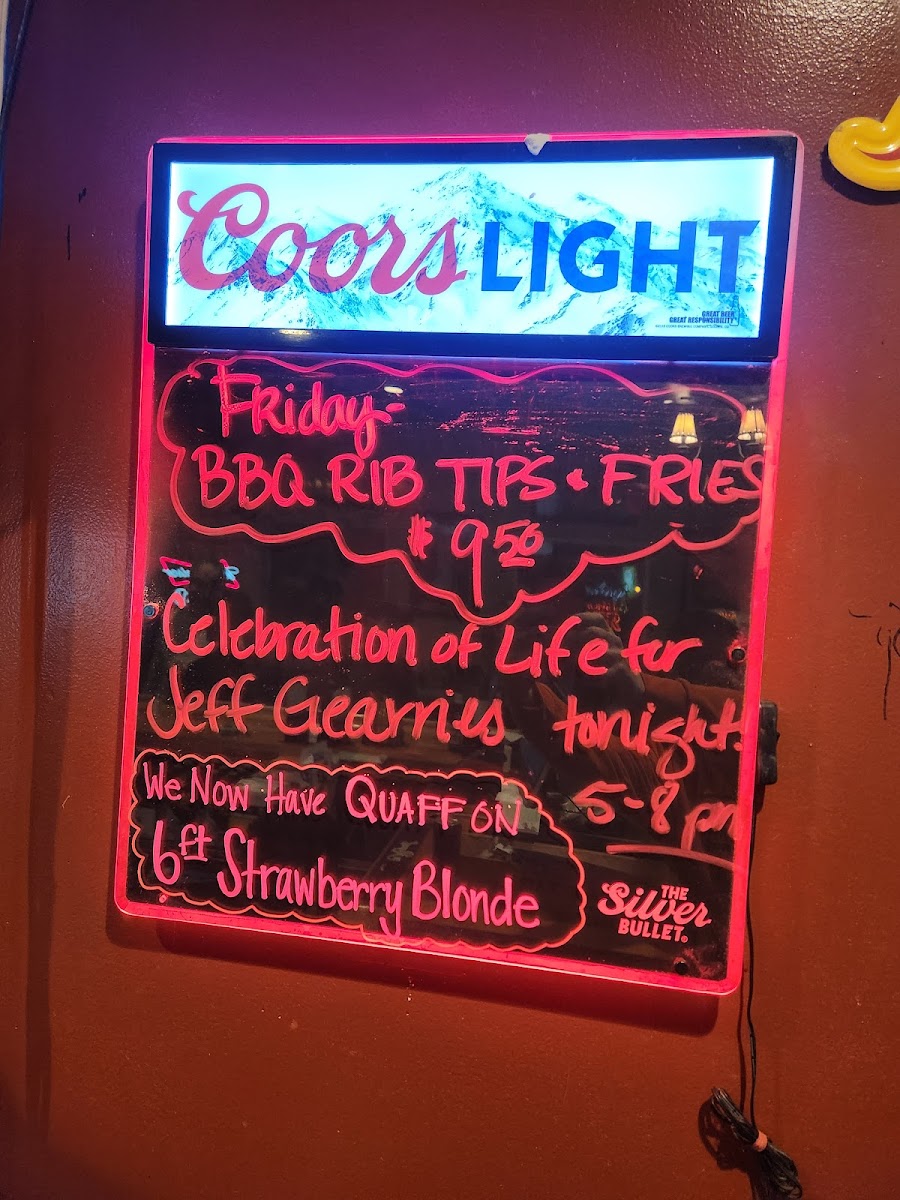 Coors LIGHT
GREAT BEER
GREAT RESPONSIBILITY
Friday-
BBQ RIB TIPS & FRIES
$9.50
Celebration of Life for
Jeff Gearries tonight!
5-8 pm
We Now Have QUAFF ON
6ft Strawberry Blonde
THE
Silver
BULLET.